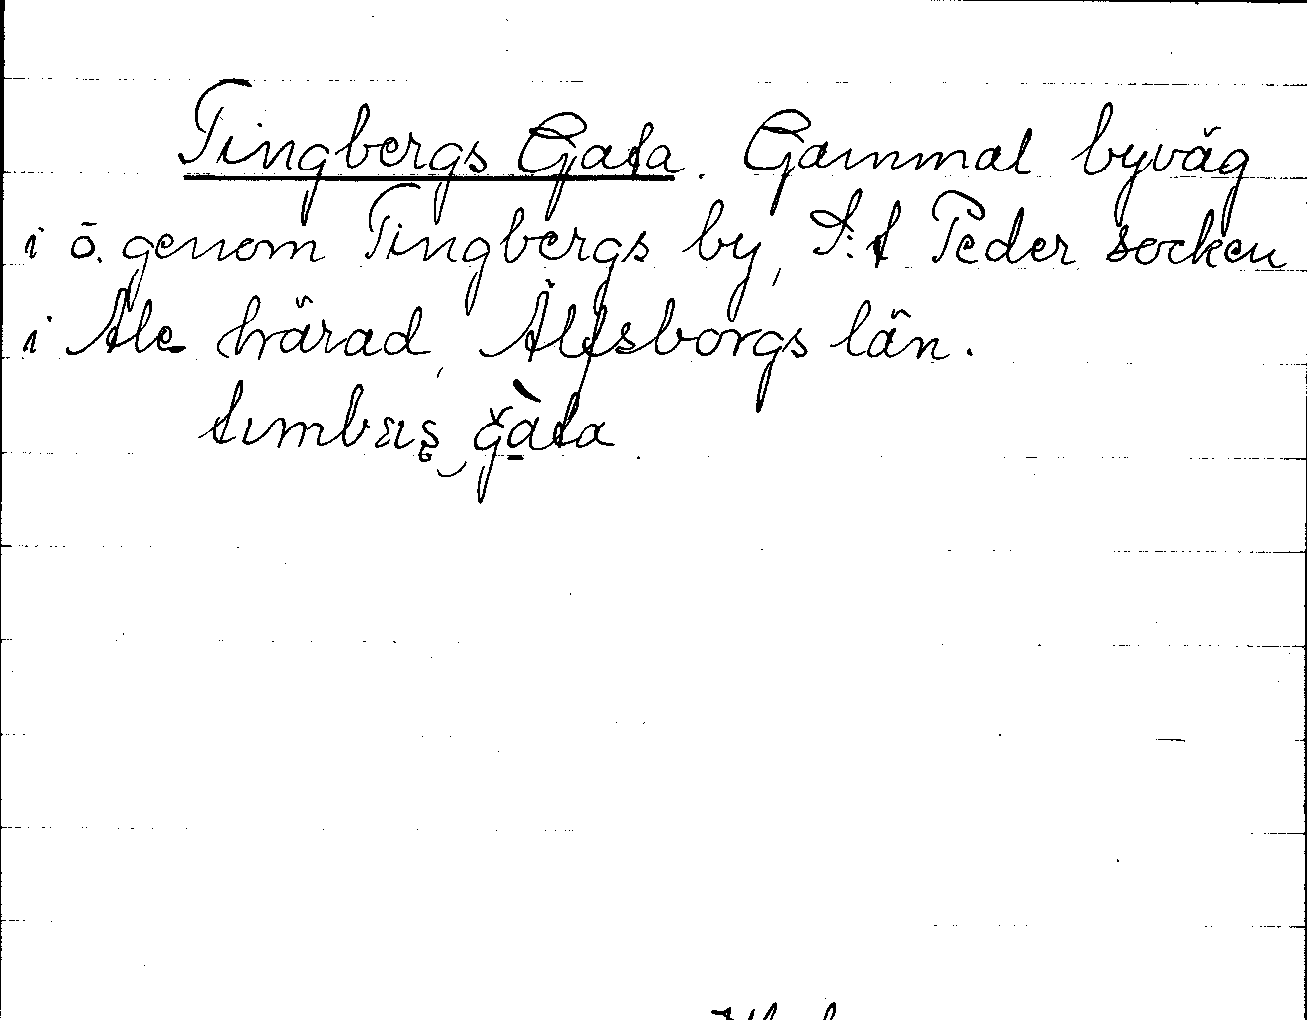 Tingbergs Gata. Gammal byväg
i ö. genom Tingbergs by, S:t Peder socken
i Ale härad, Älfsborgs län.